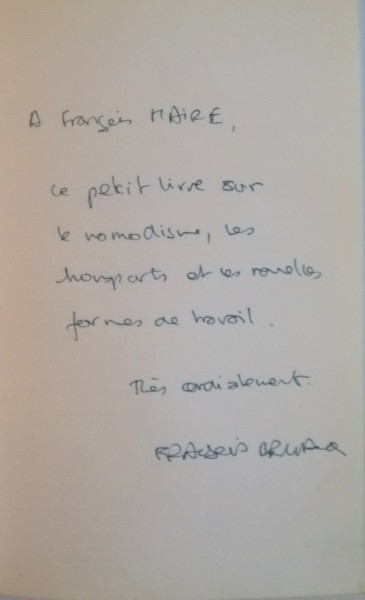 A François MAIRE,
ce petit livre sur
le nomadisme, les
transports et les nouvelles
formes de travail.
Très cordialement.